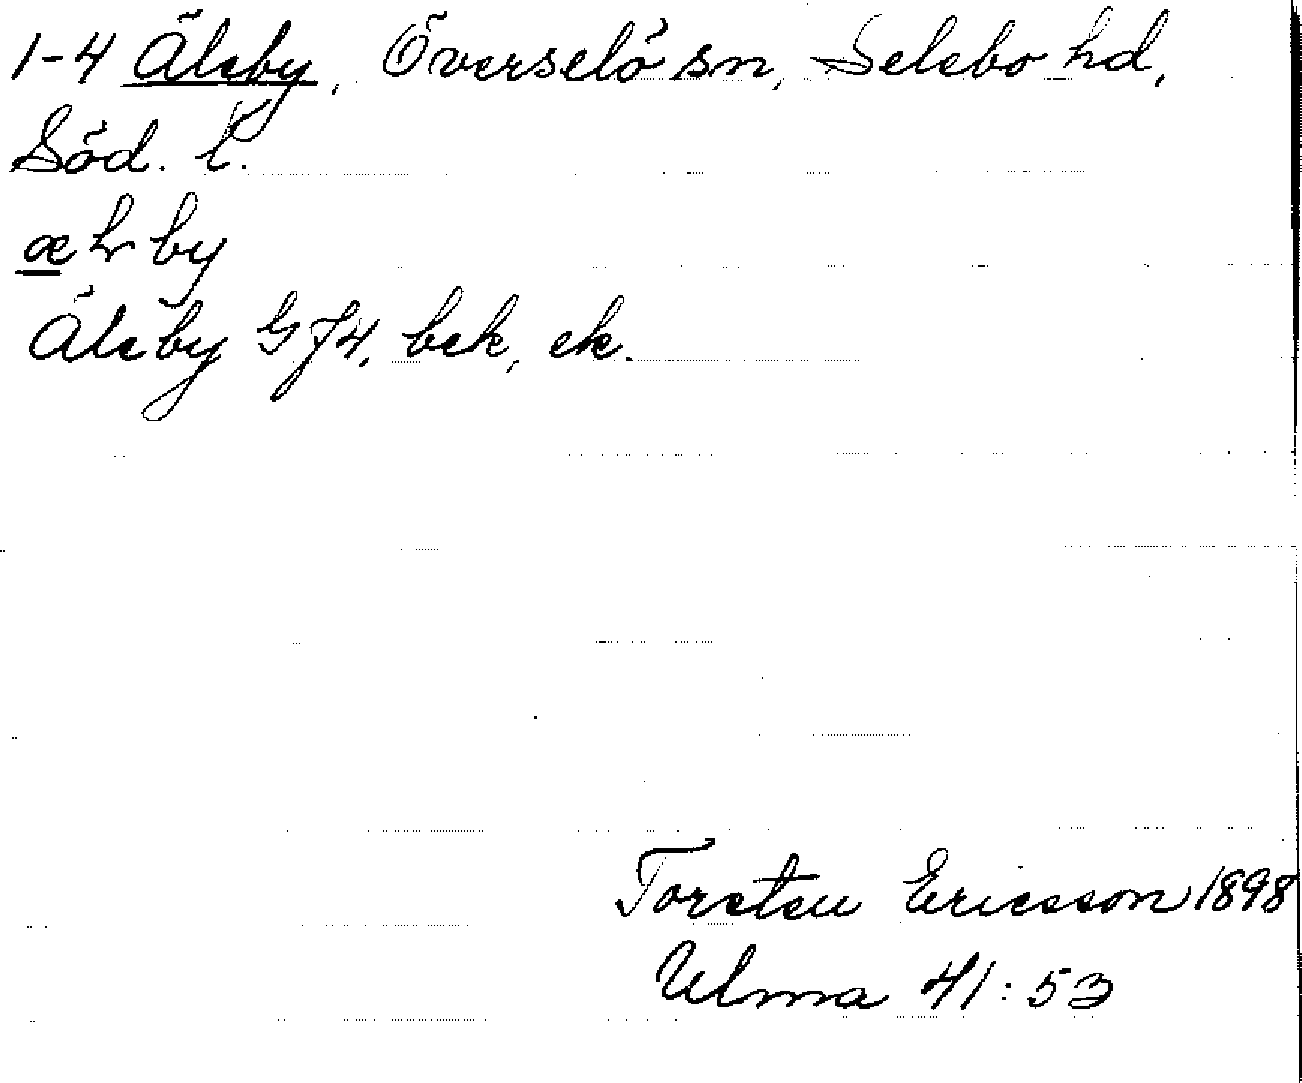 1-4 Älsby, Överselö sn, Selebo hd,
Söd. l.
Älsby G J4, bek, ek.
Torsten Ericsson 1898
Ulma 41:53